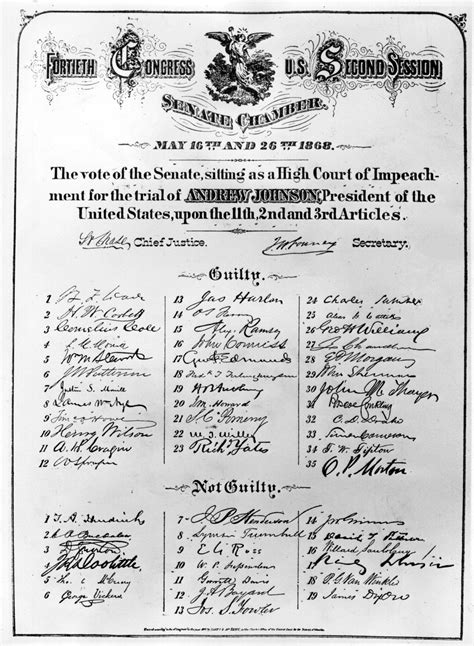 FORTIETH CONGRESS U.S. SECOND SESSION.
SENATE CHAMBER.
MAY 16TH AND 26TH 1868.
The vote of the Senate, sitting as a High Court of Impeach-
ment for the trial of ANDREW JOHNSON, President of the
United States, upon the 11th, 2nd and 3rd Articles.
Chief Justice. Secretary.
Guilty.
1 B F Wade
2 H. W. Corbett
3 Cornelius Cole
4
5
6
7 Justin S. Morrill
8 James W. Nye
9
10 Henry Wilson
11 A. H. Cragin
12
13 Jas Harlan
14
15 Alex. Ramsey
16 John Conness
17 Geo F Edmunds
18
19
20 J M Howard
21 S. C. Pomeroy
22 W. T. Willey
23 Rich Yates
24 Charles Sumner
25
26 Geo H Williams
27 Z. Chandler
28 E D Morgan
29 John Sherman
30 John M. Thayer
31 Roscoe Conkling
32 C. D. Drake
33 Simon Cameron
34 T. W. Tipton
35 O. P. Morton
Not Guilty.
1 T. A. Hendricks
2
3
4 J R Doolittle
5
6 George Vickers
7 J. B. Henderson
8 Lyman Trumbull
9 E G Ross
10 W. P. Fessenden
11 Garrett Davis
12 J. A. Bayard
13 Jos. S. Fowler
14
15
16 Willard Saulsbury
17
18 P. G. Van Winkle
19 James Dixon